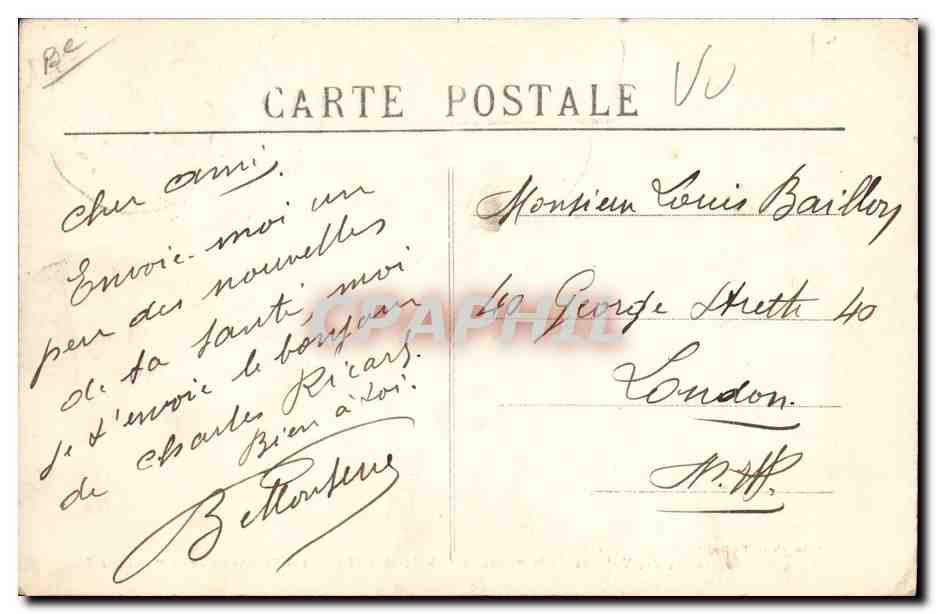 Be
VU
CARTE POSTALE
Cher ami.
Envoie-moi un
peu des nouvelles
de ta santé, moi
je t'envoie le bonjour
de Charles Ricard.
Bien à toi.
Monsieur Louis Baillon
40 George Strette 40
London.
N.W.
CPAPHIL